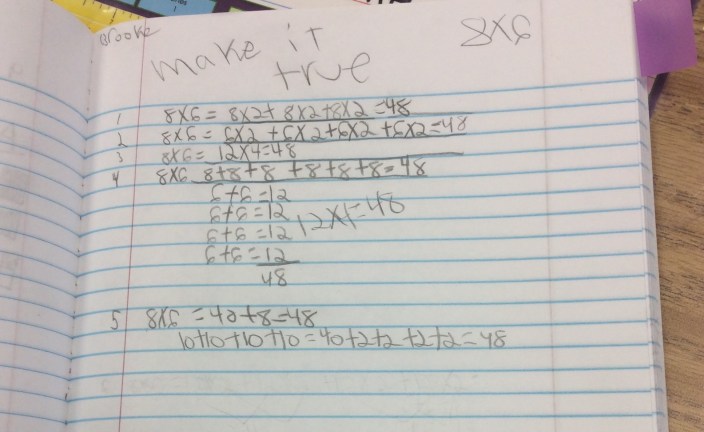 Brooke
make it
true
8x6
1 8x6 = 8x2+ 8x2+8x2=48
2 8x6 = 6x2 +6x2+6x2 +6x2=48
3 8x6= 12x4=48
4 8x6 8+8+8 +8+8+8=48
6+6=12
6+6=12
6+6=12 12x4=48
6+6=12
48
5 8x6 =40+8=48
10+10+10+10=40+2+2+2+2=48